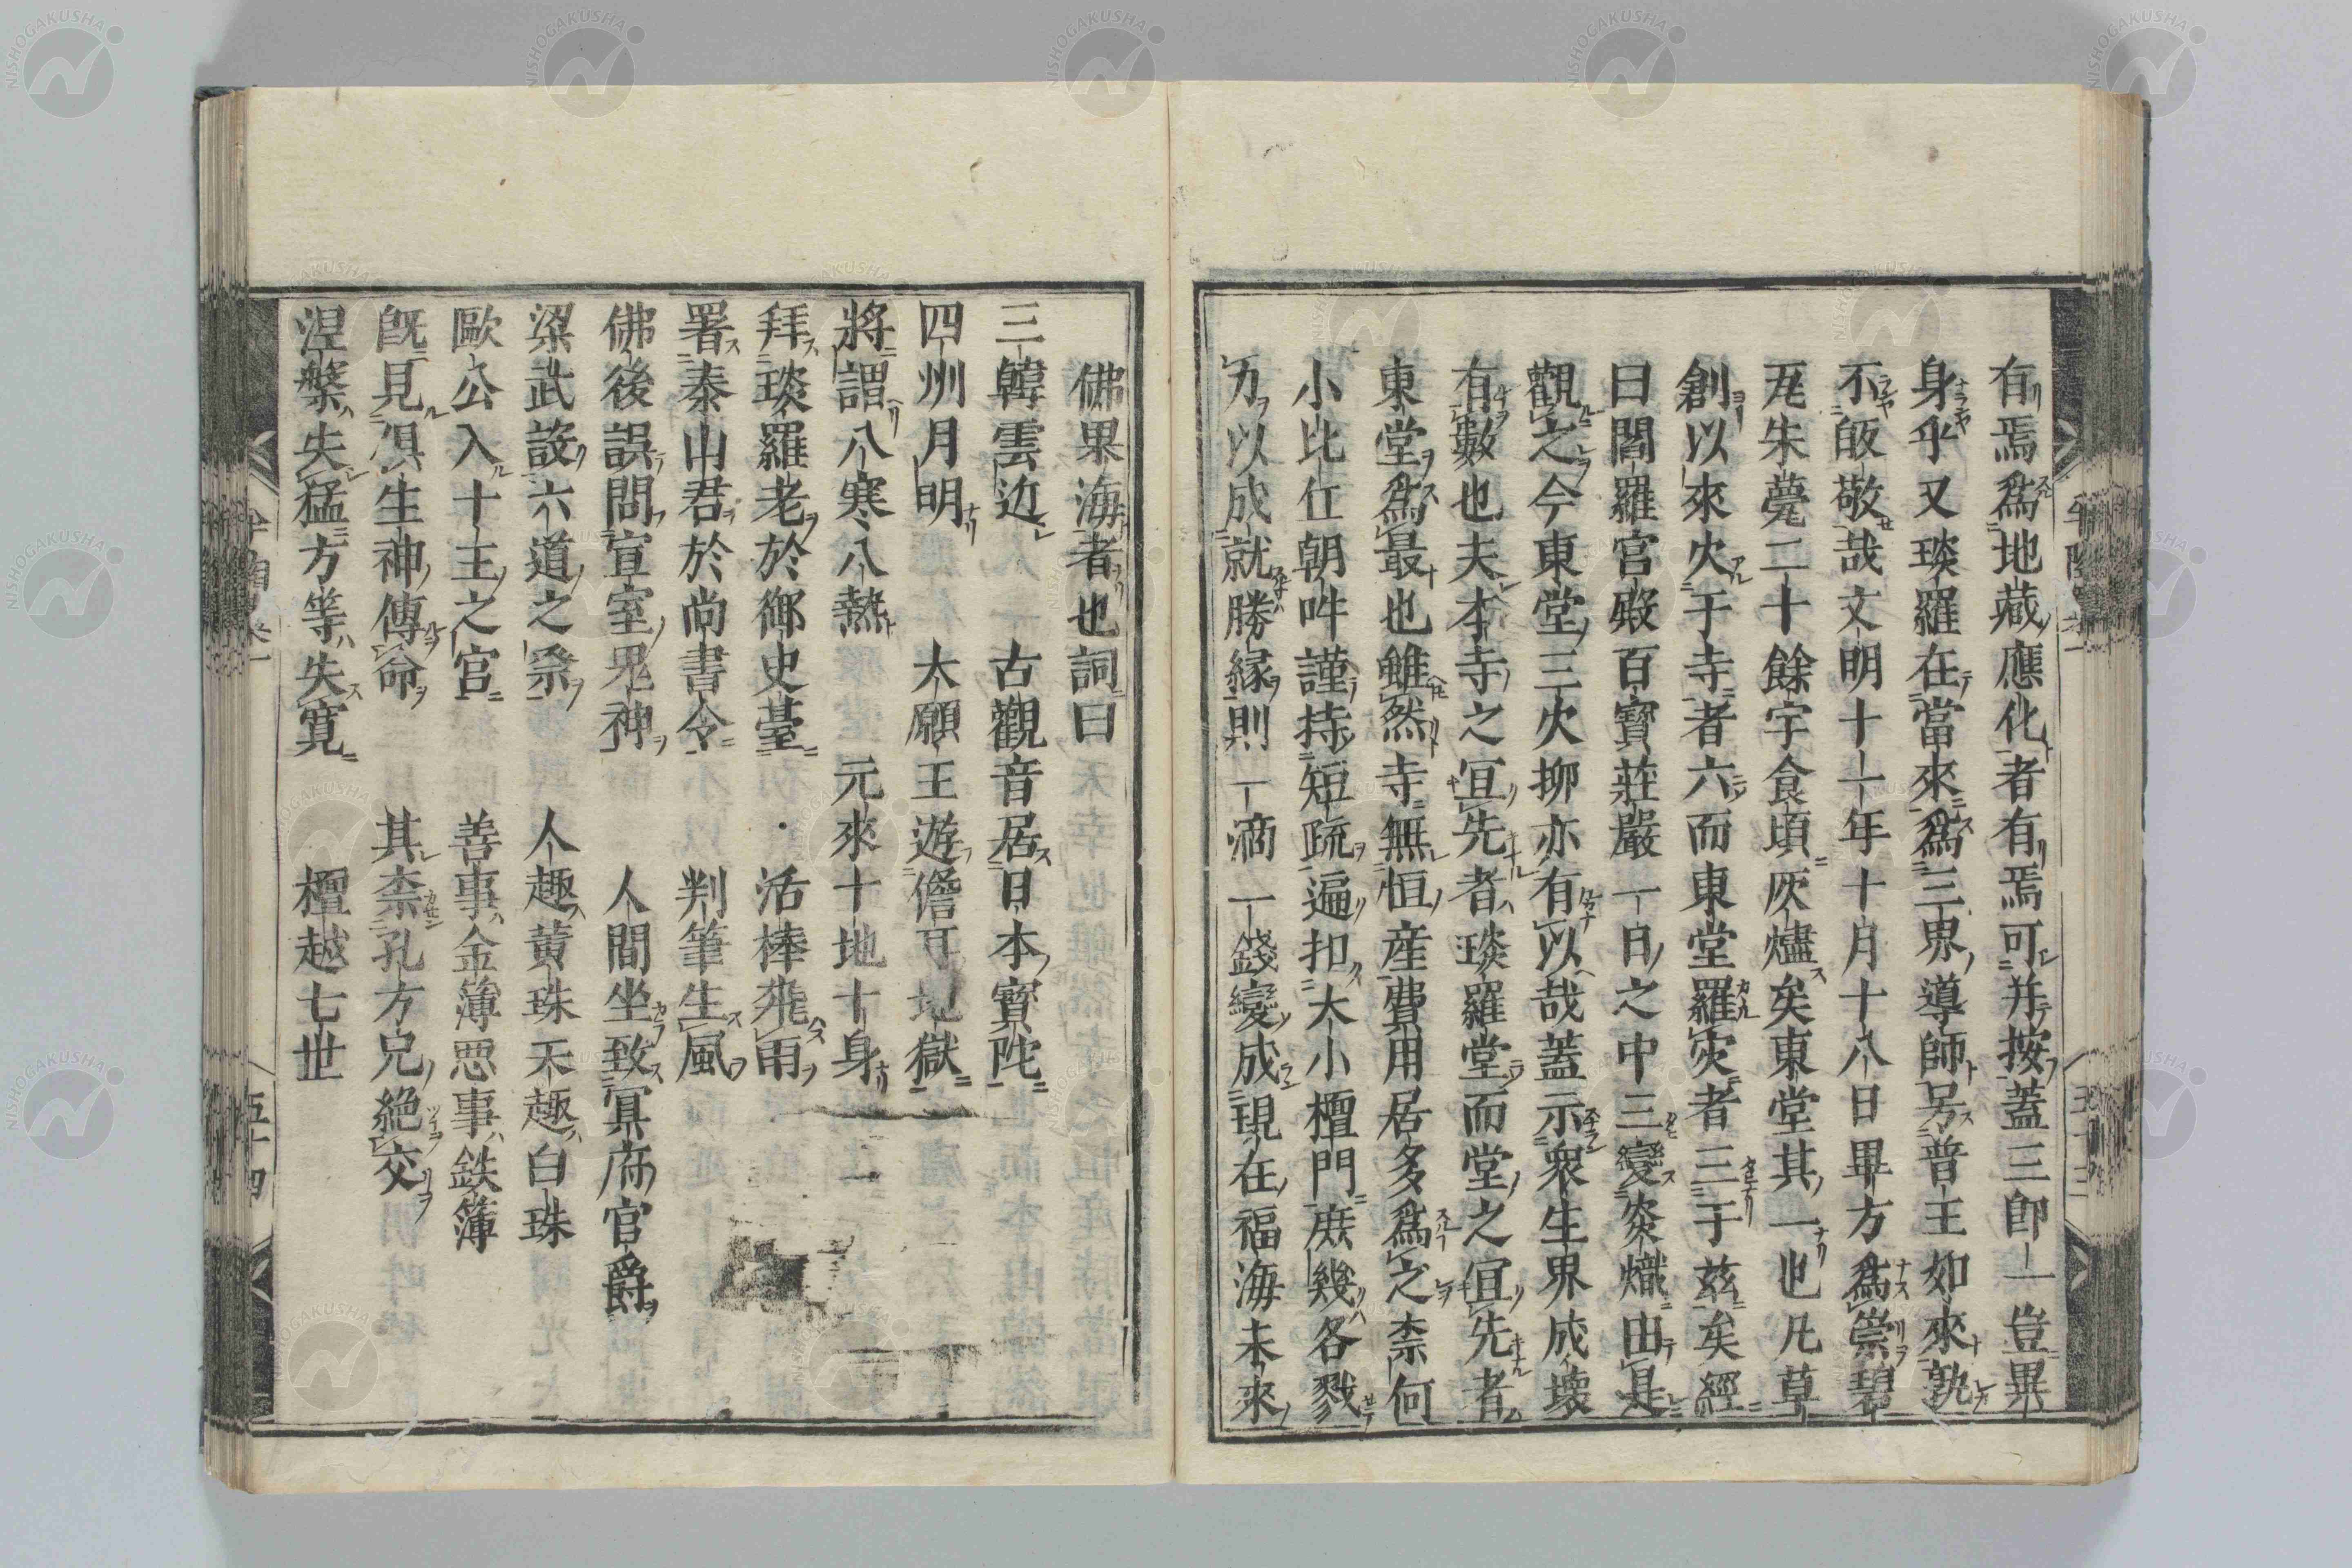 有焉爲地藏應化者有焉可并按蓋三卽一豈異
身乎又琰羅在當來爲三界導師号普王如來孰
不皈敬哉文明十一年十月十八日畢方爲崇碧
瓦朱甍二十餘宇食頃灰燼矣東堂其一也凡草
創以來火于寺者六而東堂羅灾者三于茲矣經
曰閻羅宮殿百寶莊嚴一日之中三變衮熾由是
觀之今東堂三火抑亦有以哉蓋示衆生界成壞
有數也夫本寺之宜先者琰羅堂而堂之宜先者
東堂爲最也雖然寺無恒産費用居多爲之柰何
小比丘朝吽謹持短疏遍扣大小檀門庶幾各戮
力以成就勝緣則一滴一錢變成現在福海未來
佛果海者也詞曰
三韓雲边 古觀音居日本寶陀
四州月明 大願王遊儋耳地獄
將謂八寒八熱 元來十地十身
拜琰羅老於御史臺 活棒飛雨
署泰山君於尚書令 判筆生風
佛後誤問宣室鬼神 人間坐致冥府官爵
梁武設六道之祭 人趣黄珠天趣白珠
歐公入十王之宮 善事金簿悪事鉄簿
既見倶生神傳命 其柰孔方兄絶交
涅槃失猛方等失寛 檀越七世
五十四